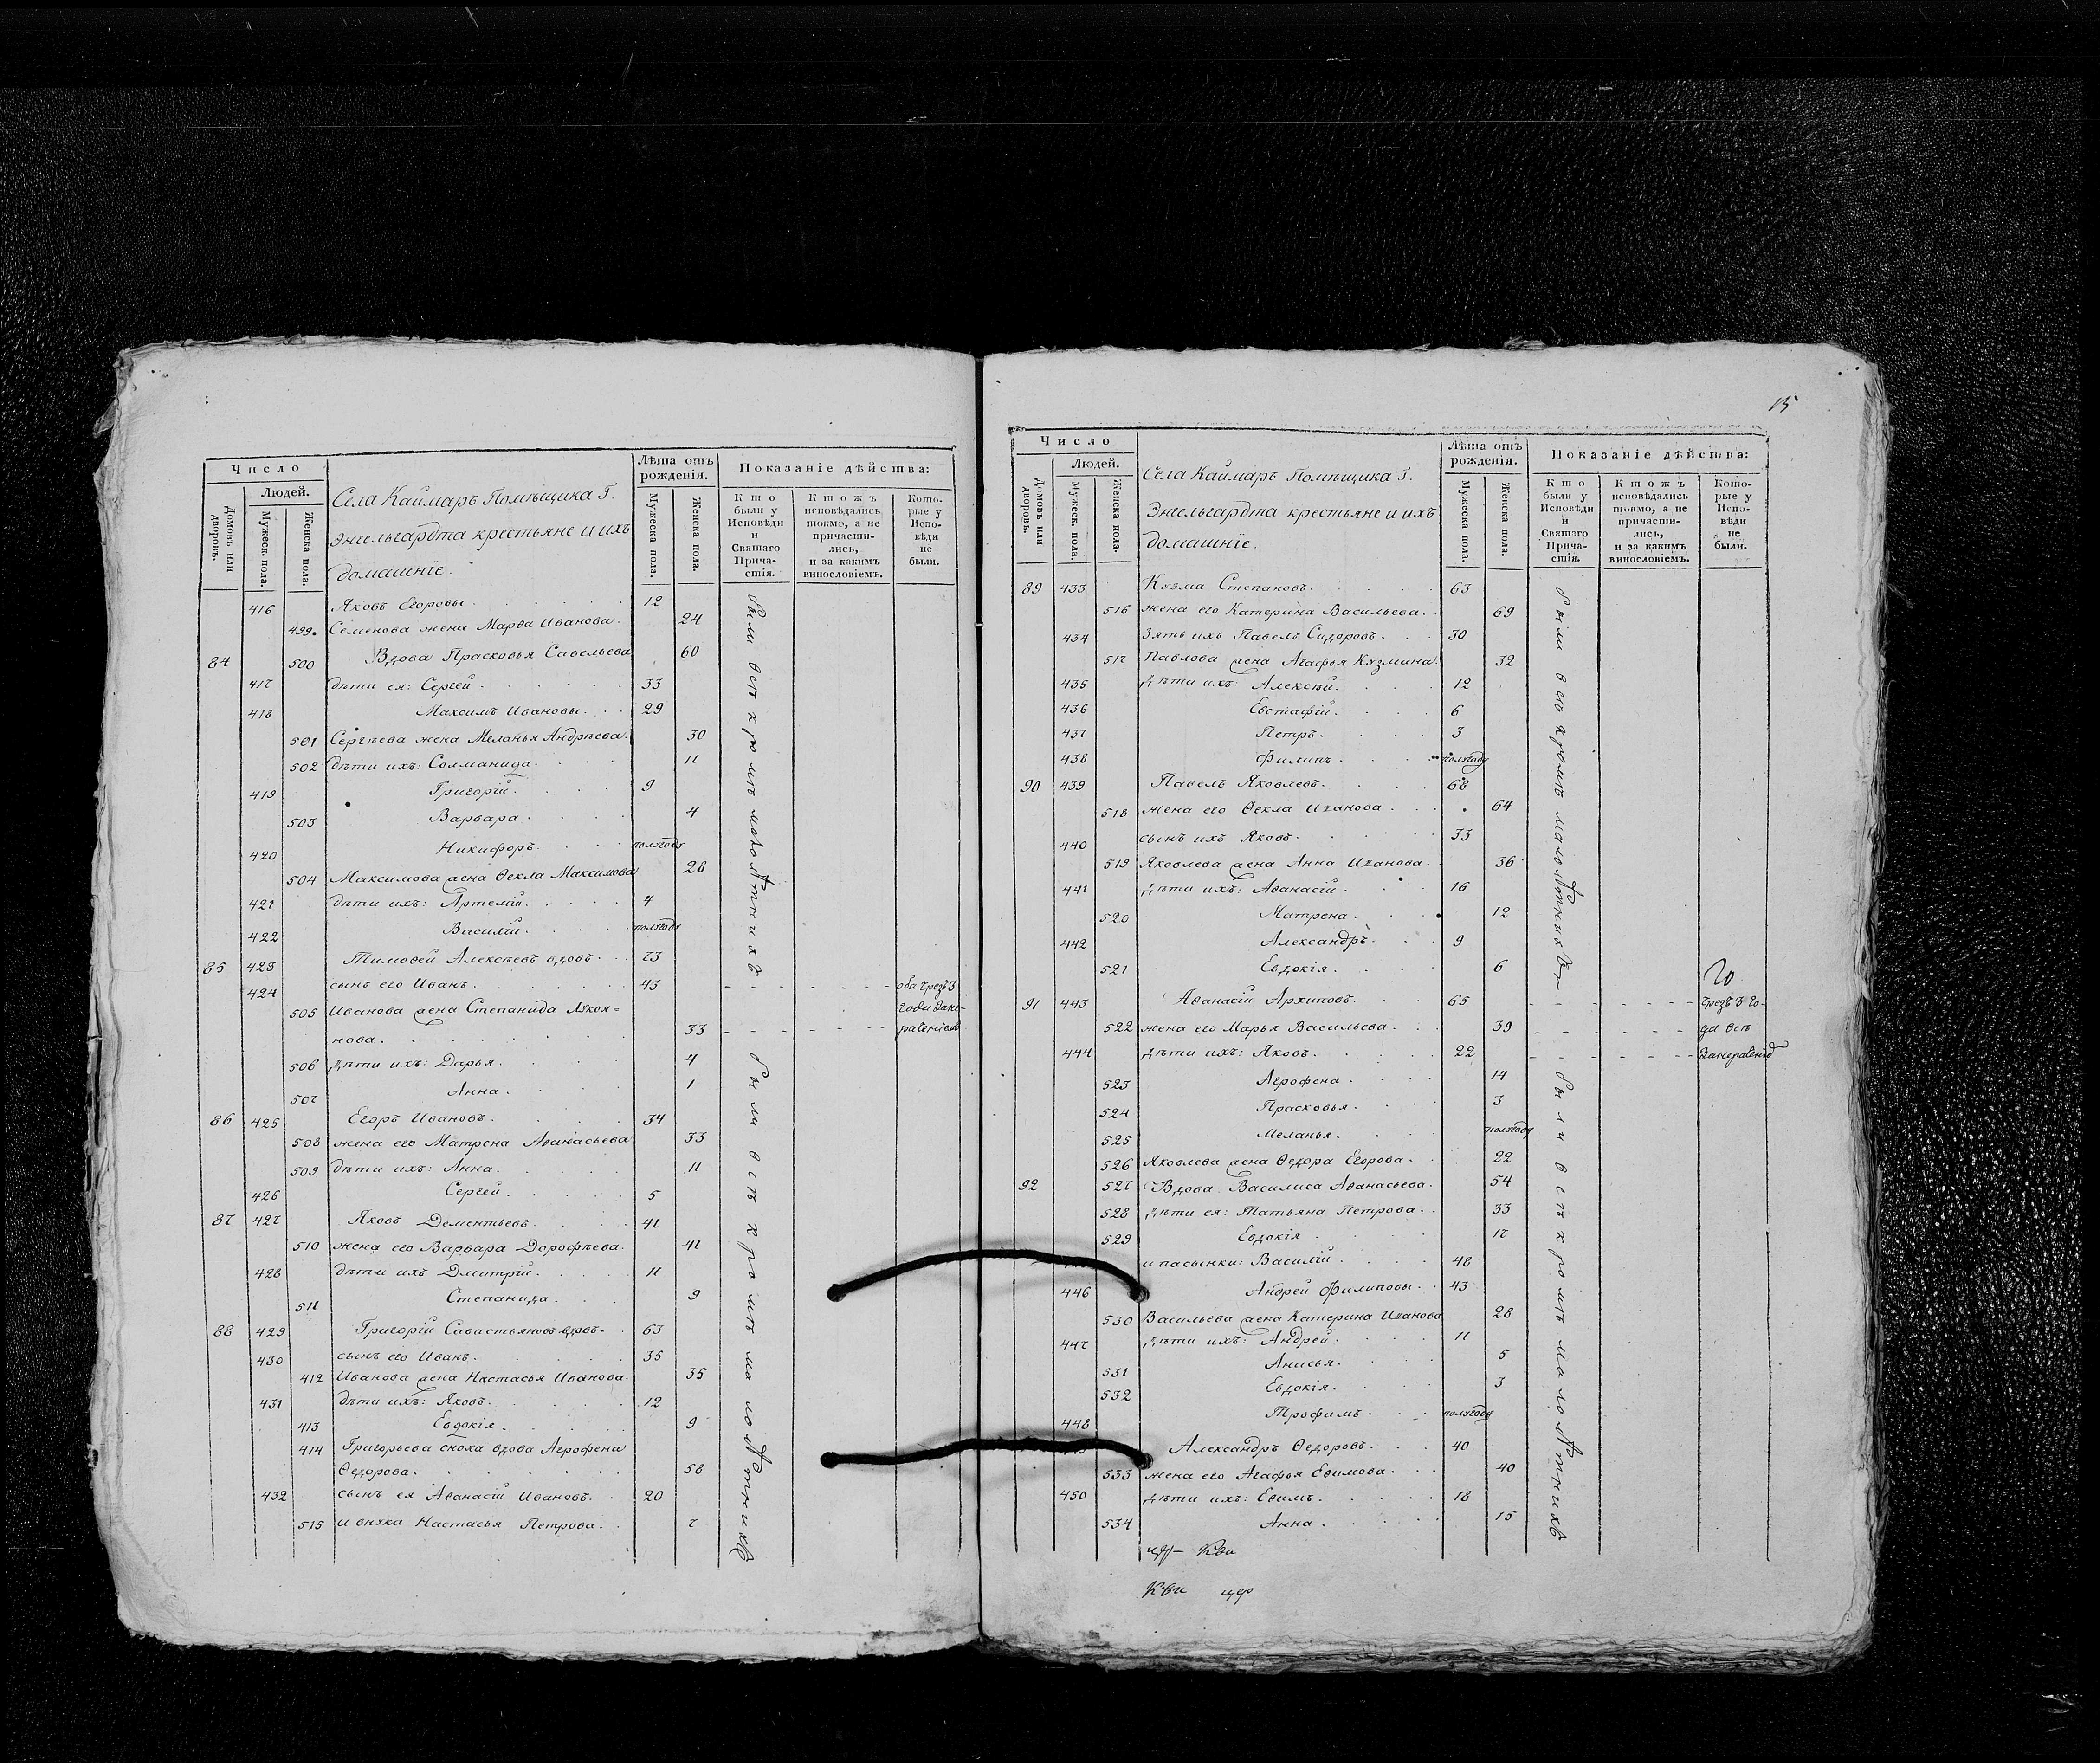 15
Число
Людей.
Домовъ или дворовъ.
Мужеск. пола.
Женска пола.
Села Каймаръ Помѣщика Г.
Энгельгардта крестьяне и ихъ
домашніе.
Лѣта отъ рожденія.
Мужеска пола.
Женска пола.
Показаніе дѣйства:
Кто были у Исповѣди и Святаго Причастія.
Ктожъ исповѣдались токмо, а не причастились, и за какимъ винословіемъ.
Которые у Исповѣди не были.
416 Яковъ Егоровы 12
499 Семенова жена Марѳа Иванова 24
84 500 Вдова Прасковья Савельева 60
417 дѣти ея: Сергей 33
418 Максимъ Ивановы 29
501 Сергѣева жена Меланья Андрѣева 30
502 дѣти ихъ: Соломанида 11
419 Григорій 9
503 Варвара 4
420 Никифоръ полъгоду
504 Максимова жена Ѳекла Максимова 28
421 дѣти ихъ: Артемій 4
422 Василій полъгоду
были всѣ кромѣ малолѣтнихъ
85 423 Тимоѳей Алексѣевъ вдовъ 73
424 сынъ его Иванъ 43 оба чрезъ 3
505 Иванова жена Степанида Лукоя= года за не-
нова 33 раченіем
506 дѣти ихъ: Дарья 4
507 Анна 1
86 425 Егоръ Ивановъ 34
508 жена его Матрена Аѳанасьева 33
509 дѣти ихъ: Анна 11
426 Сергей 5
87 427 Яковъ Дементьевъ 41
510 жена его Варвара Дорофѣева 41
428 дѣти ихъ Дмитрій 11
511 Степанида 9
88 429 Григорій Савастьяновъ вдовъ 63
430 сынъ его Иванъ 35
412 Иванова жена Настасья Иванова 35
431 дѣти ихъ: Яковъ 12
413 Евдокія 9
414 Григорьева сноха вдова Агрофена
Ѳедорова 58
432 сынъ ея Аѳанасій Ивановъ 20
515 и внука Настасья Петрова 7
были всѣ кромѣ малолѣтнихъ
Число
Людей.
Домовъ или дворовъ.
Мужеск. пола.
Женска пола.
Села Каймаръ Помѣщика Г.
Энгельгардта крестьяне и ихъ
домашніе.
Лѣта отъ рожденія.
Мужеска пола.
Женска пола.
Показаніе дѣйства:
Кто были у Исповѣди и Святаго Причастія.
Ктожъ исповѣдались токмо, а не причастились, и за какимъ винословіемъ.
Которые у Исповѣди не были.
89 433 Кузма Степановъ 63
516 жена его Катерина Васильева 69
434 Зять ихъ Павелъ Сидоровъ 30
517 Павлова жена Агафья Кузмина 32
435 Дѣти ихъ: Алексѣй 12
436 Евстафій 6
437 Петръ 3
438 Филипъ полъгоду
90 439 Павелъ Яковлевъ 68
518 жена его Ѳекла Иванова 64
440 сынъ ихъ Яковъ 33
519 Яковлева жена Анна Иванова 36
441 Дѣти ихъ: Аѳанасій 16
520 Матрена 12
442 Александръ 9
521 Евдокія 6
были всѣ кромѣ малолѣтнихъ
91 443 Аѳанасій Архиповъ 65 чрезъ 3 го-
522 жена его Марья Васильева 39 да всѣ
444 Дѣти ихъ: Яковъ 22 за нераченіе
523 Агрофена 14
524 Прасковья 3
525 Меланья полъгоду
526 Яковлева жена Ѳедора Егорова 22
92 527 Вдова Василиса Аѳанасьева 54
528 Дѣти ея: Татьяна Петрова 33
529 Евдокія 17
и пасынки: Василій 48
446 Андрей Филиповы 43
530 Васильева жена Катерина Иванова 28
447 Дѣти ихъ: Андрей 11
531 Анисья 5
532 Евдокія 3
448 Трофимъ полъгоду
Александръ Ѳедоровъ 40
533 жена его Агафья Еѳимова 40
450 Дѣти ихъ: Еѳимъ 18
534 Анна 15
были всѣ кромѣ малолѣтнихъ